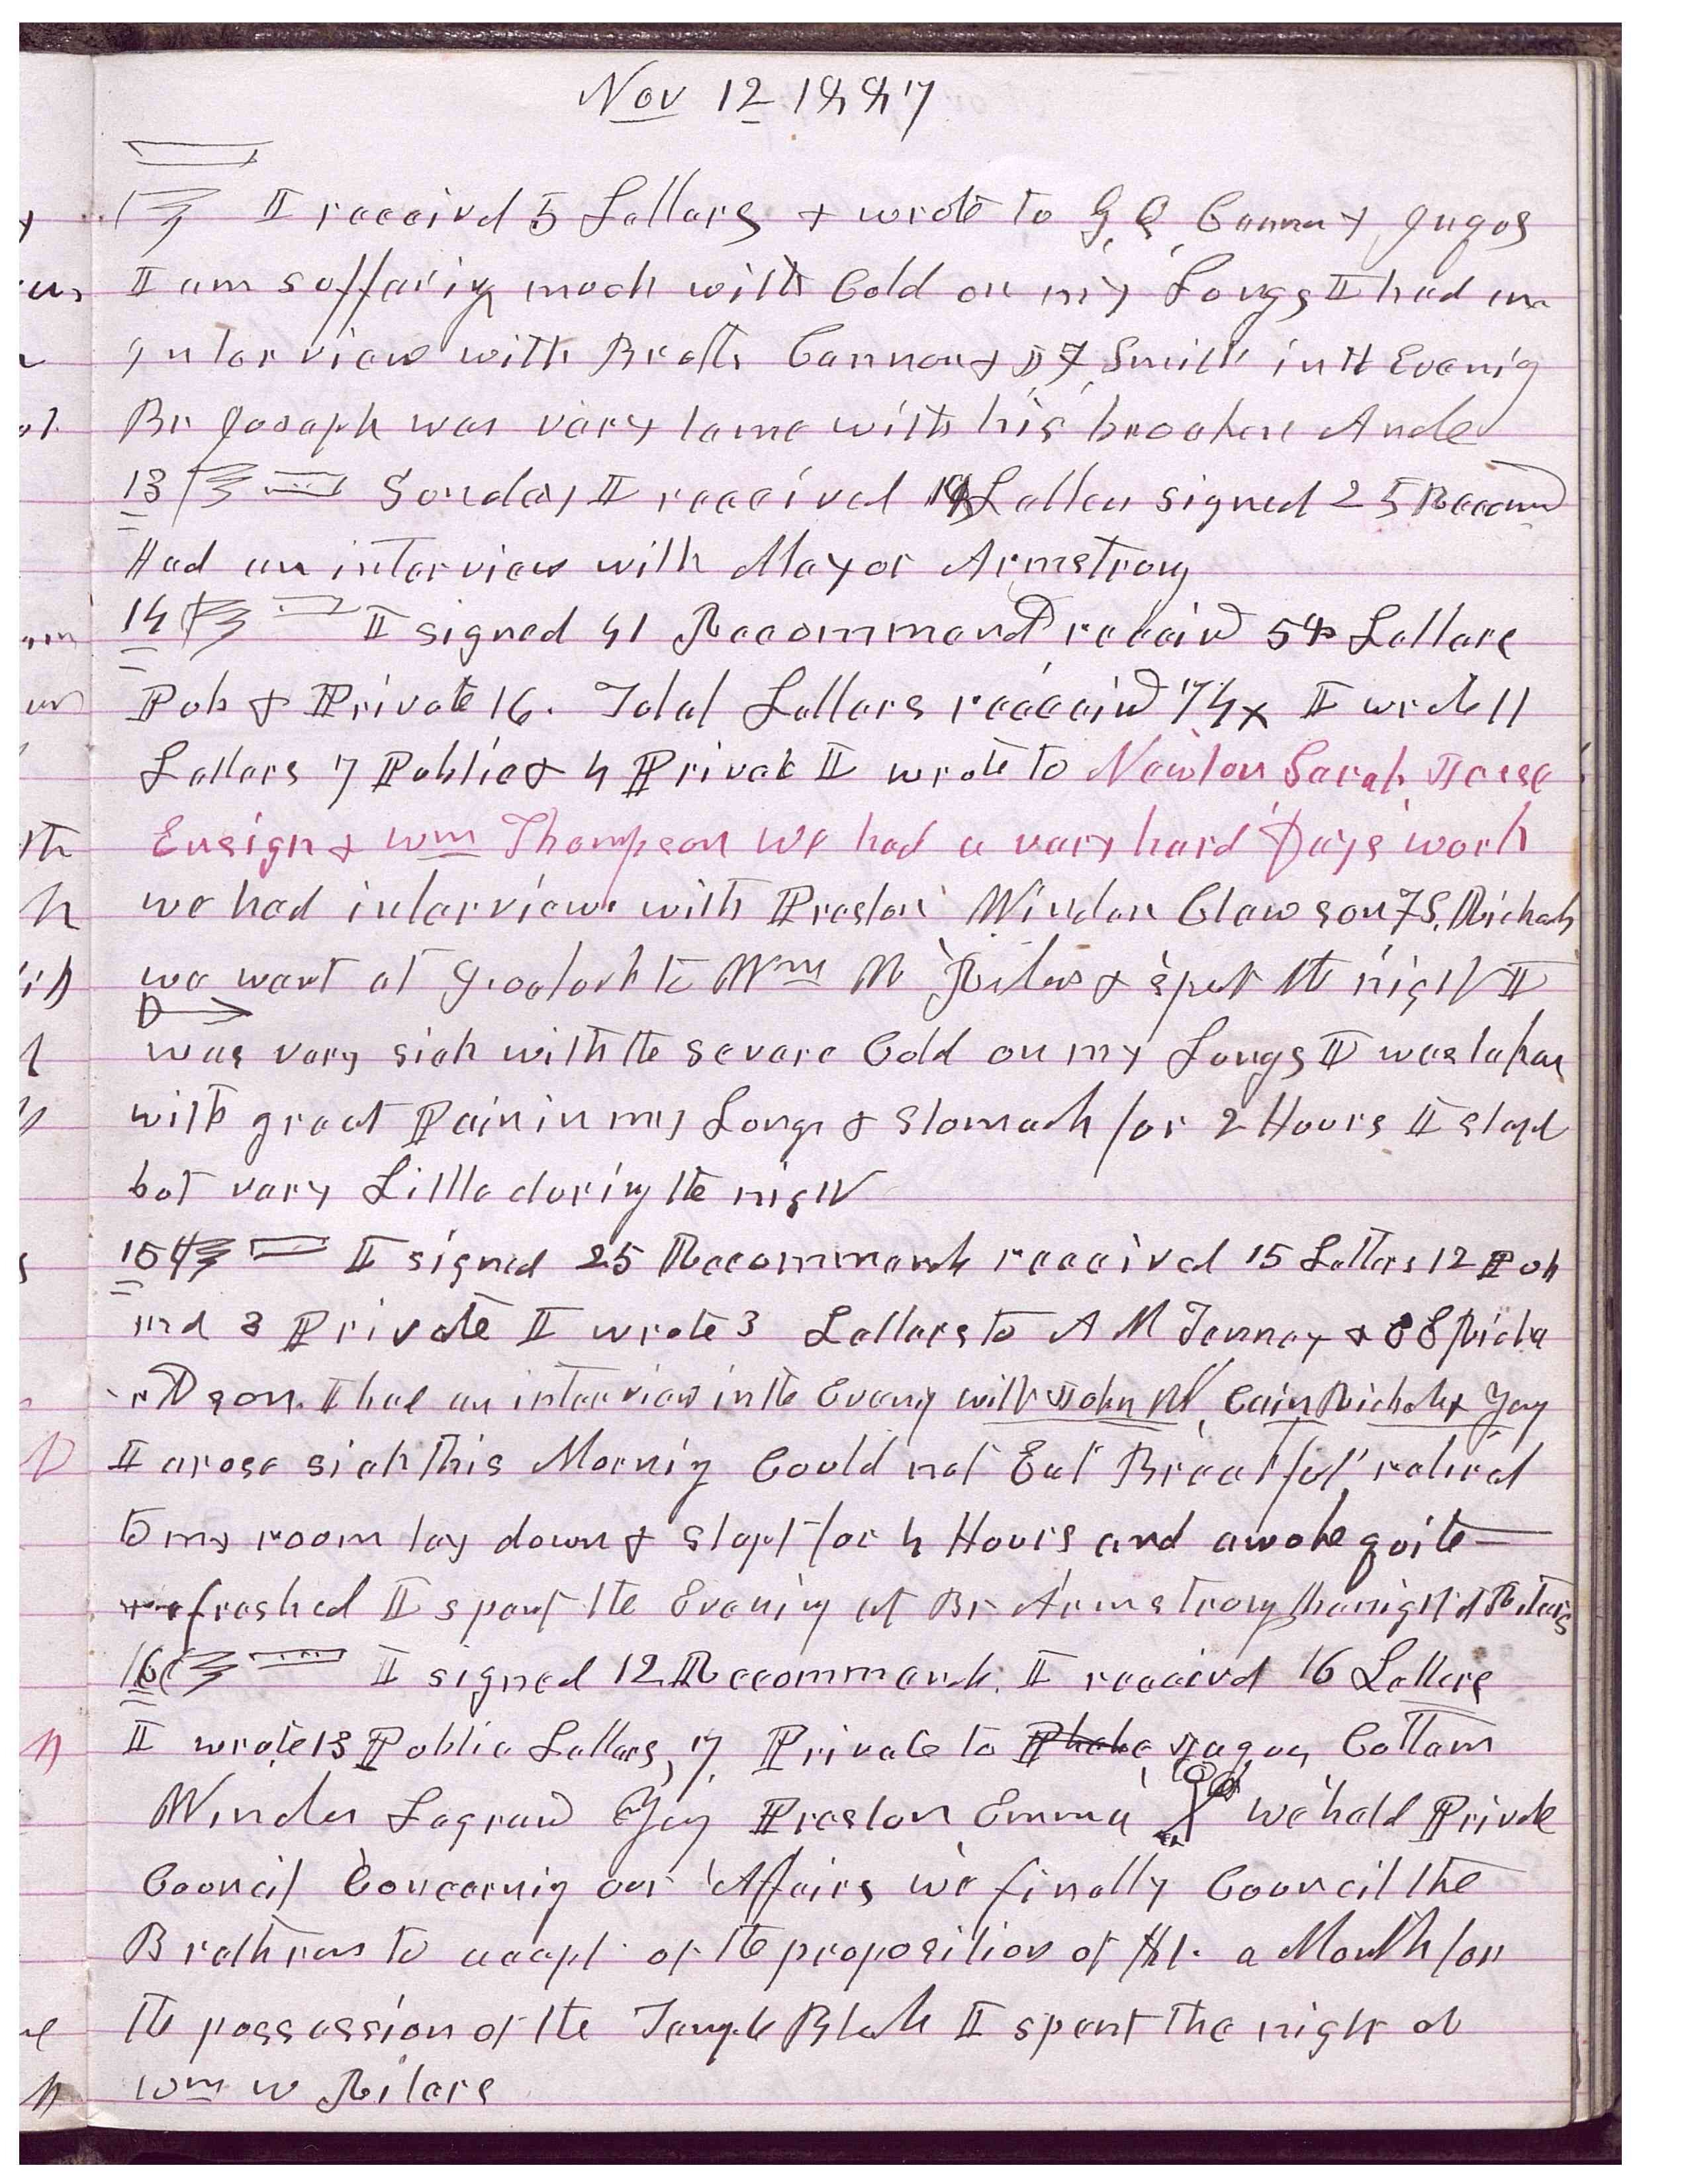 Nov 12 1887
I receivd 5 Letters & wrote to G, Q, Cannon & Jaques
I am suffering much with Cold on my Lungs I had an
Interview with Broth Cannon & J F Smith in the Evenig
Br Joseph was very lame with his broaken Ancle
13 Sunday I received 19 Letters signed 25 Recomd
Had an interview with Mayor Armstrong
14 I signed 41 Recommend receivd 58 Letters
Pub & Private 16. Total Letters receeivd 74 x I wrote 11
Letters 7 Public & 4 Private I wrote to Newton Sarah Jesse
Ensign & Wm Thompson we had a very hard Days work
we had interviews with Preston Winder Clawson F S, Richads
we went at 9 oclock to Wm W Riters & spent the night I
was very sick with the severe Cold on my Lungs I was taken
with great Pain in my Lungs & Stomach for 2 Hours I slept
but very Little during the night
15 I signed 25 Recommends received 15 Letters 12 Pub
and 3 Private I wrote 3 Letters to A M Tenney & S S Richa
rdson. I had an interview in the Evenig with John W, Cain Richads & Jay
I arose sick this Mornig Could not Eat Breakfast retired
to my room lay down & slept for 4 Hours and awoke quite
refreshed I spent the Evening at Br Armstrong the night at Riters
16 I signed 12 Recommends. I receeivd 16 Letters
I wrote 13 Public Letters, 7, Private to Phebe Jaques Cottam
Winder Legrand Jay Preston Emma we held Private
Council Concernig our Affairs we finally Council the
Brethren to accept of the proposition of $1. a Month for
the possession of the Temple Block I spent the night at
Wm W Riters